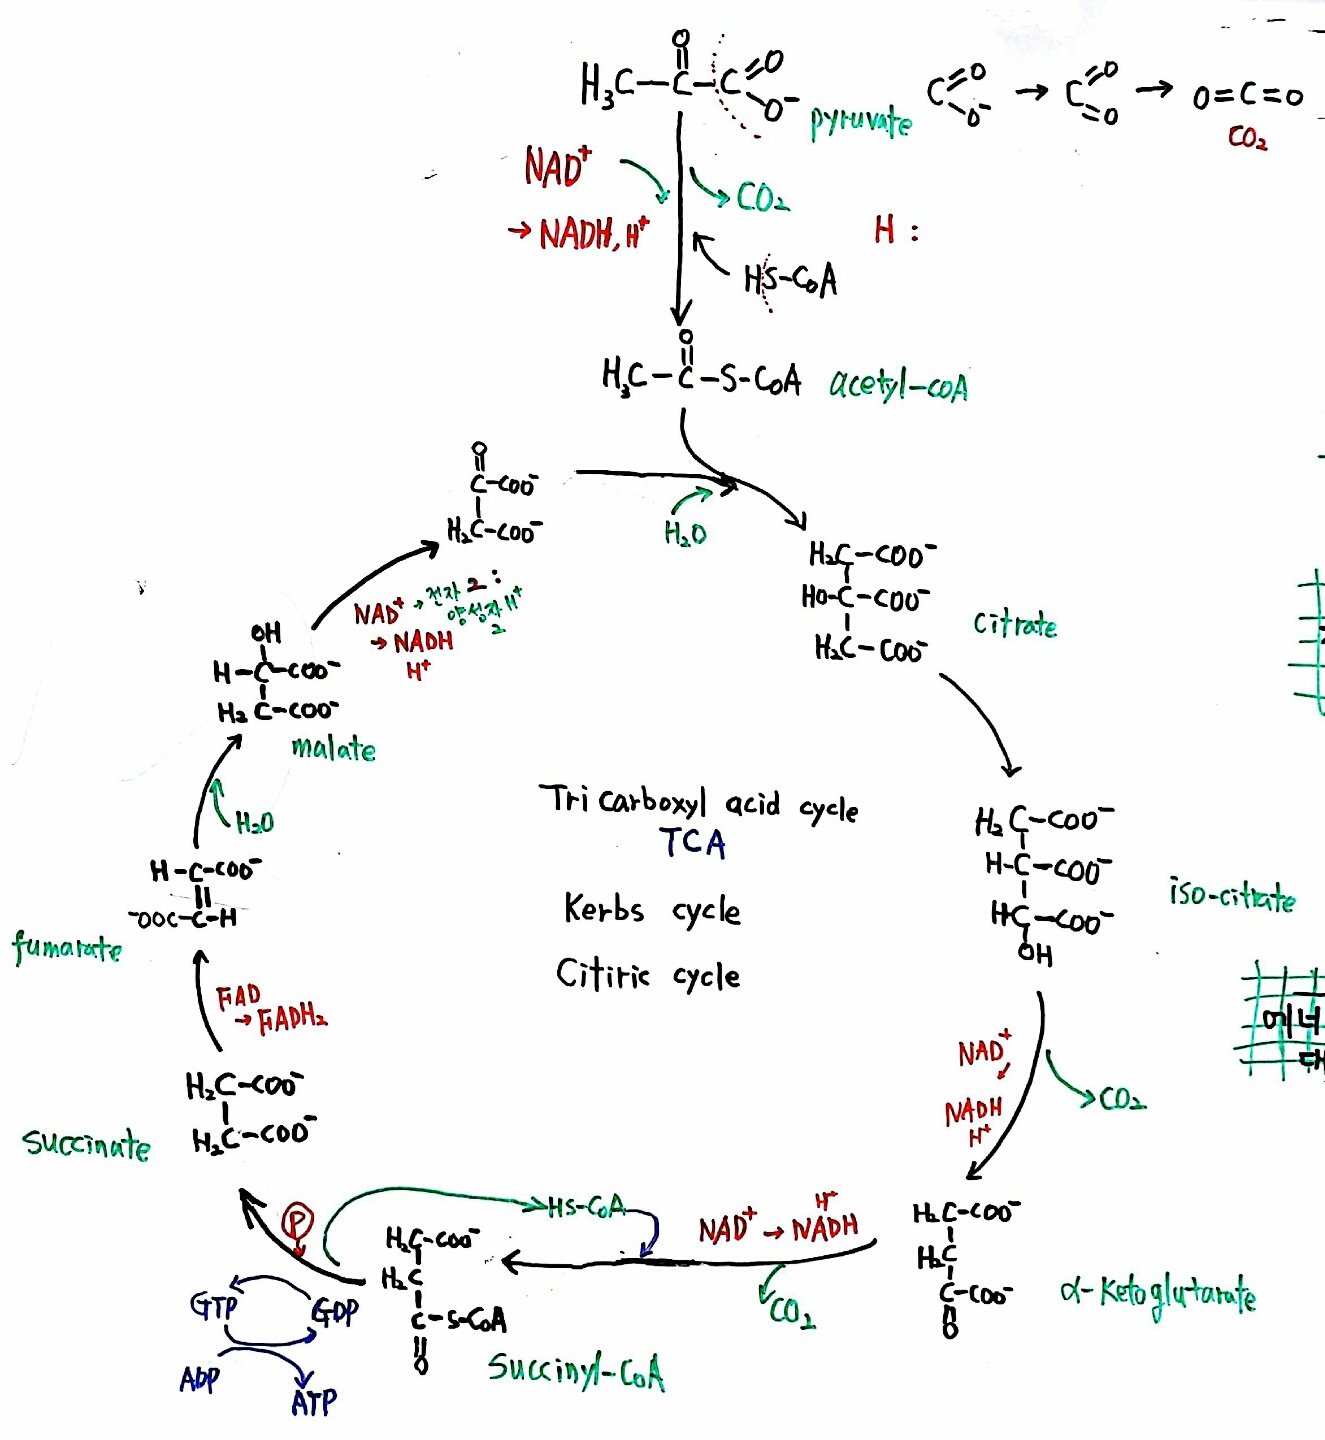 O
H₃C-C-C=O
O⁻
pyruvate
C=O
O⁻
→
C=O
=O
→
O=C=O
CO₂
NAD⁺
→ NADH, H⁺
CO₂
H :
HS-CoA
O
H₃C-C-S-CoA
acetyl-coA
O
C-COO⁻
H₂C-COO⁻
H₂O
H₂C-COO⁻
HO-C-COO⁻
H₂C-COO⁻
citrate
NAD⁺ → 전자 2 :
양성자 H⁺
2
→ NADH
H⁺
OH
H-C-COO⁻
H₂C-COO⁻
malate
H₂O
Tri carboxyl acid cycle
TCA
Kerbs cycle
Citiric cycle
H₂C-COO⁻
H-C-COO⁻
HC-COO⁻
OH
iso-citrate
H-C-COO⁻
⁻OOC-C-H
fumarate
FAD
→ FADH₂
에너
NAD⁺
NADH
H⁺
CO₂
H₂C-COO⁻
H₂C-COO⁻
succinate
P
HS-CoA
NAD⁺ → NADH
H⁺
CO₂
H₂C-COO⁻
H₂C
C-COO⁻
O
α-Ketoglutarate
H₂C-COO⁻
H₂C
C-S-CoA
O
Succinyl-CoA
GTP
GDP
ADP
ATP